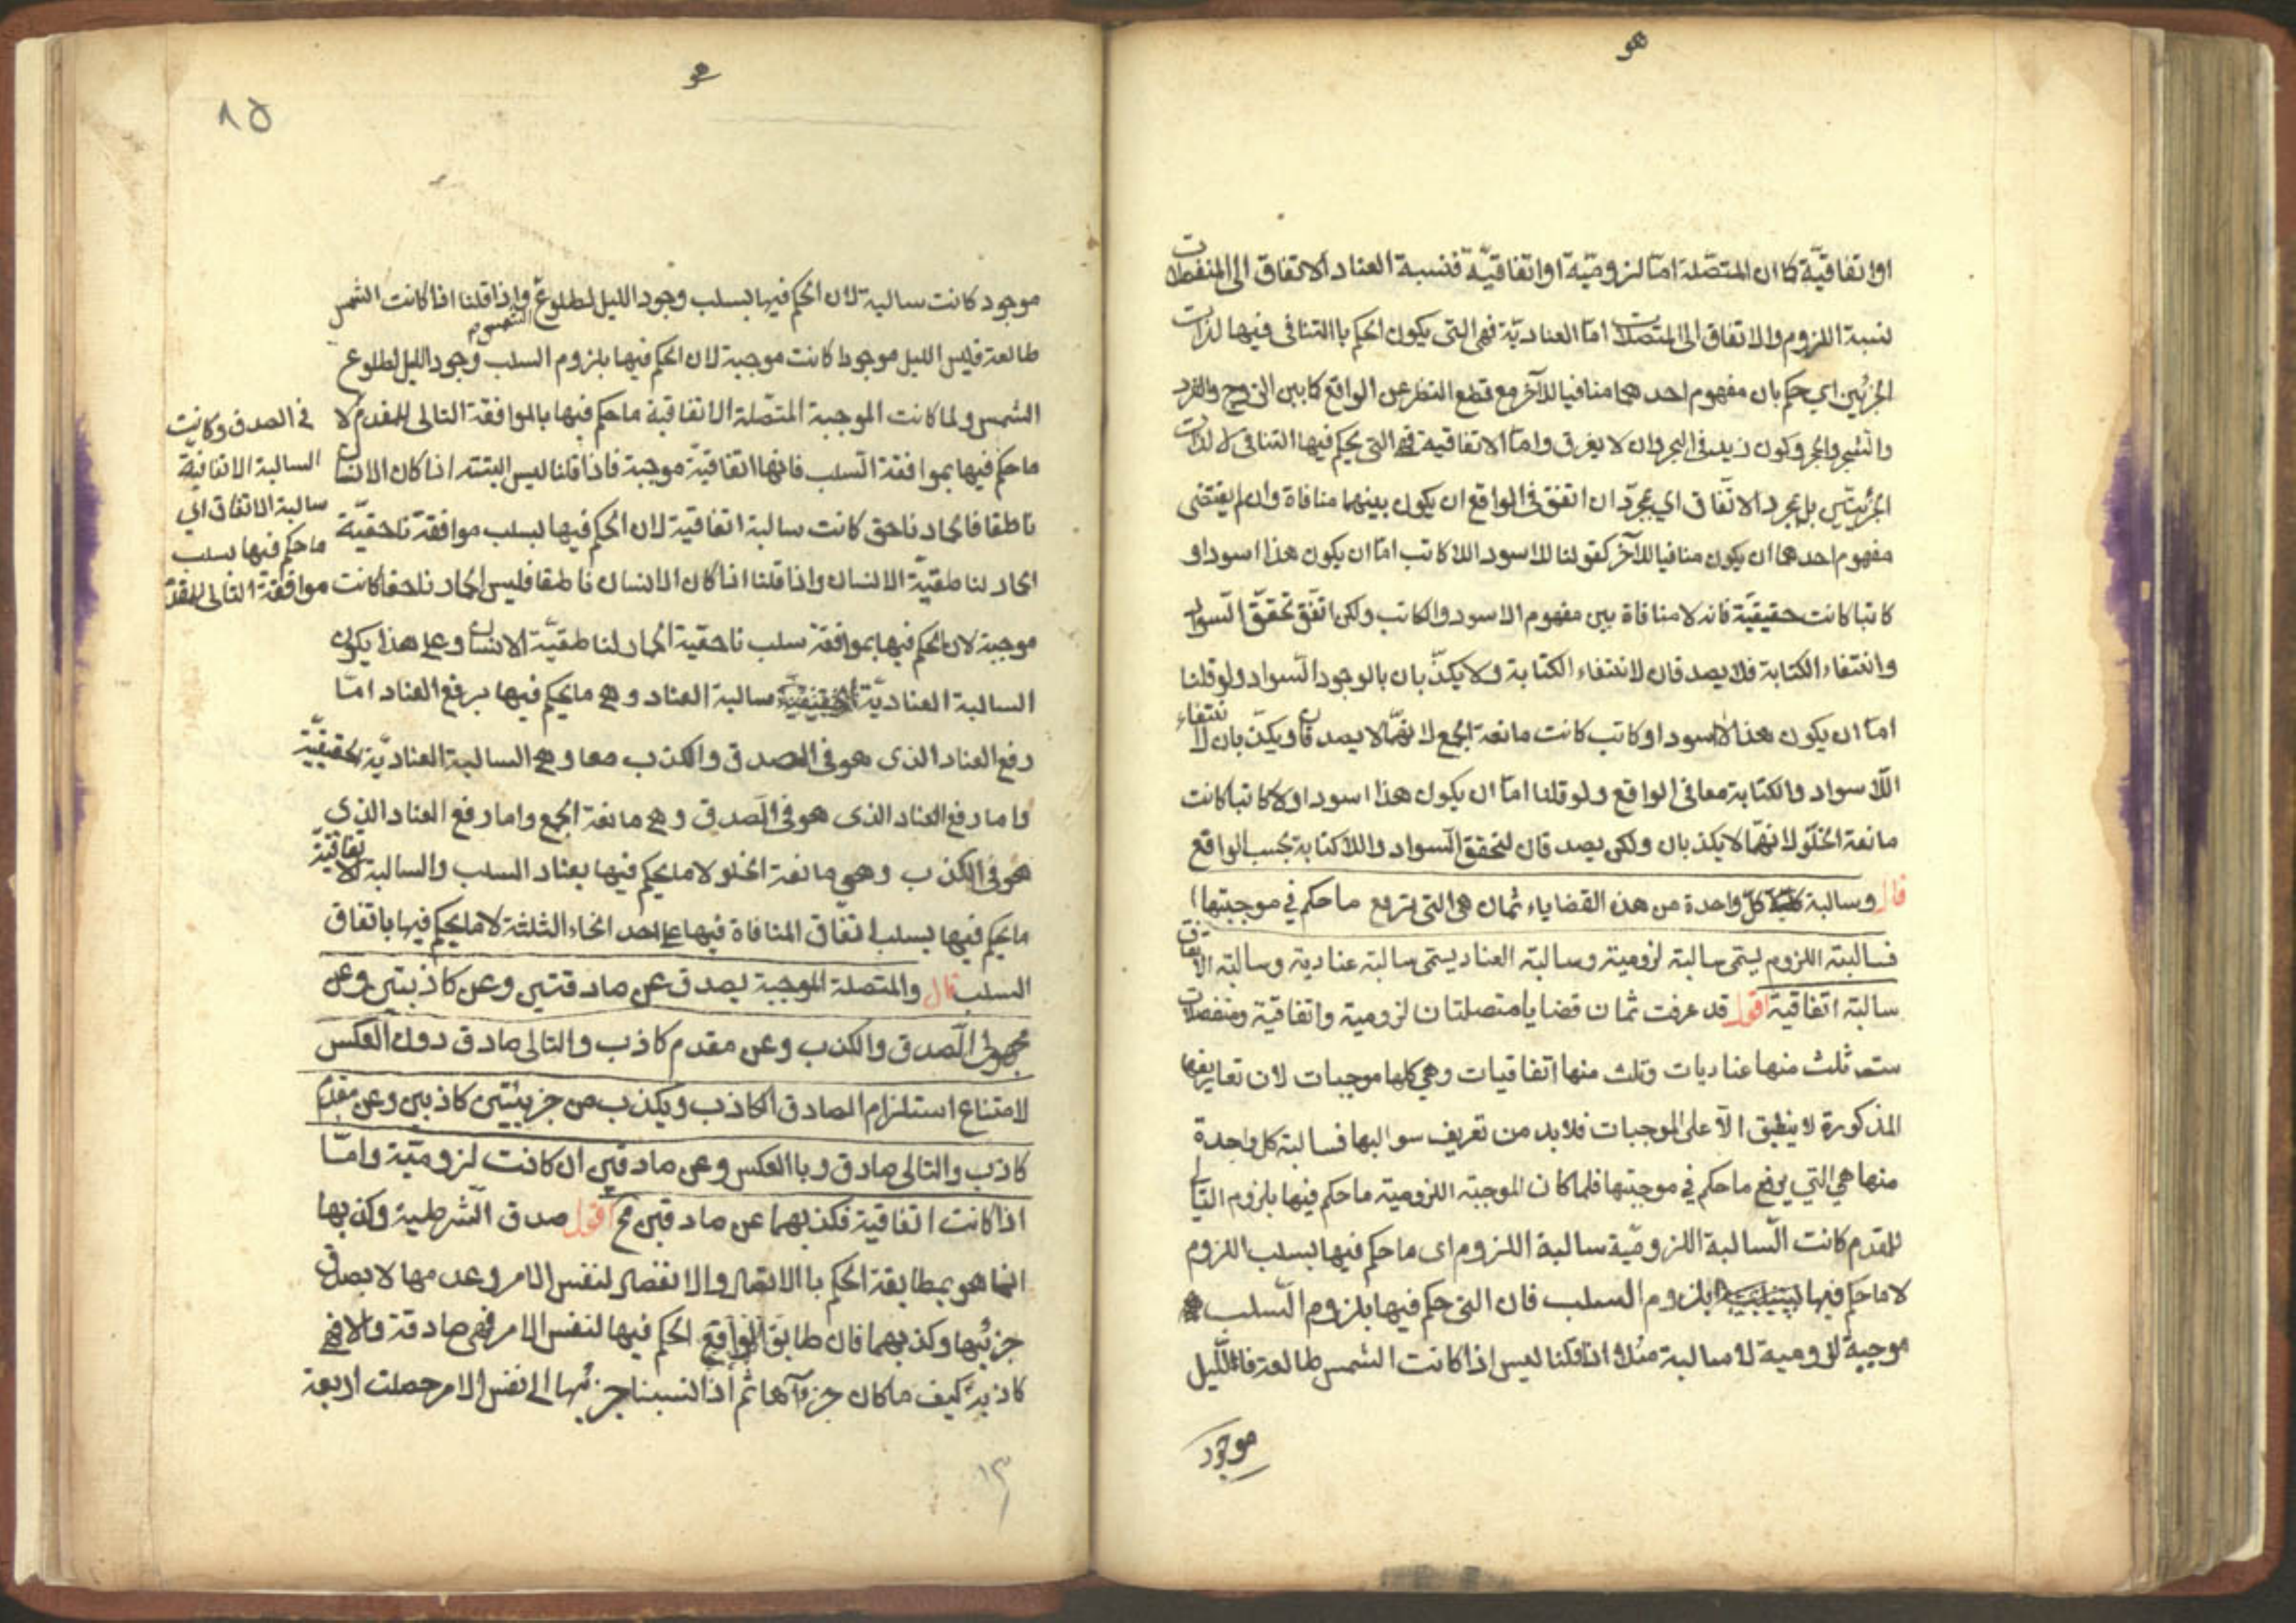 هو
اواتفاقيّة كما ان المتصّلة امّا لزوميّة او اتفاقيّة فنسبة العناد الاتفاق الى المنفصلات
لنسبة اللزوم والاتفاق الى المتصلات امّا العناديّة فهى التى يكون الحكم باالتنافى فيها لذات
الجزئين اي حكم بان مفهوم احدهما منافيا للآخر مع قطع النظر عن الواقع كما بين الزوج والفرد
والشجر والحجر وكون زيد فى البحر وان لا يغرق وامّا الاتفاقية فهى التى يحكم فيها التنافى لا لذات
الجزئيتين بل بمجرد الاتّفاق اي بمجرّد ان اتفق فى الواقع ان يكون بينهما منافاة وان لم يقتضى
مفهوم احدهما ان يكون منافيا للآخر كقولنا للاسود اللا كاتب امّا ان يكون هذا اسود او
كاتبا كانت حقيقيّة فانه لا منافاة بين مفهوم الاسود والكاتب ولكن اتّفق تحقّق السّواد
وانتفاء الكتابة فلا يصدقان لانتفاء الكتابة ولا يكذّبان بالوجود السّواد ولو قلنا
امّا ان يكون هذا لا اسود او كاتب كانت مانعة الجمع لانهّما لا يصدقان ويكذّبان لانتفاء
اللّا سواد والكتابة معا فى الواقع ولو قلنا امّا ان يكون هذا اسود او لا كاتبا كانت
مانعة الخلّو لانهّما لا يكذبان ولكن يصدقان لتحقق السّواد واللاكتابة بحسب الواقع
قال وسالبة كلّ واحدة من هذه القضاياء ثمان هى التى ترفع ما حكم في موجبتها
فسالبته اللزوم يسمّى سالبة لزومية وسالبة العناد يسمّى سالبة عنادية وسالبة الاتفاق
سالبة اتفاقية اقول قد عرفت ثمان قضايا متصلتان لزومية واتفاقيّة ومنفصلات
ست ثلث منها عناديات وثلث منها اتفاقيات وهى كلها موجبات لان تعاريفها
المذكورة لا ينطبق الّا على الموجبات فلابد من تعريف سوالبها فسالبة كل واحدة
منها هي التي يرفع ما حكم في موجبتها فلما كان الموجبة اللزومية ما حكم فيها بلزوم التالى
للمقدم كانت السّالبة اللزوميّة سالبة اللزوم اى ما حكم فيها بسلب اللزوم
لا ما حكم فيها بلزوم السلب فان التى حكم فيها بلزوم السّلب
موجبة لزومية لا سالبة مثلا اذا قلنا ليس اذا كانت الشمس طالعة فالليل
موجود
هو
٨٥
موجود كانت سالبة لان الحكم فيها بسلب وجود الليل لطلوع الشمس واذا قلنا اذا كانت الشمس
طالعة فليس الليل موجودا كانت موجبة لان الحكم فيها بلزوم السلب وجود الليل لطلوع
الشمس ولما كانت الموجبة المتصّلة الاتفاقية ما حكم فيها بالموافقة التالى للمقدم لا
ما حكم فيها بموافقة السّلب فانها اتفاقيّة موجبة فاذا قلنا ليس البتته اذا كان الانسان
ناطقا فالحمار ناحق كانت سالبة اتفاقيّة لان الحكم فيها بسلب موافقة ناحقيّة
الحمار لناطقيّة الانسان واذا قلنا اذا كان الانسان ناطقا فليس الحمار ناحقا كانت
موجبة لان الحكم فيها بموافقة سلب ناحقية الحمار لناطقيّة الانسان وعلى هذا يكون
السالبة العناديّة سالبة العناد وهى ما يحكم فيها برفع العناد امّا
رفع العناد الذى هو فى الصدق والكذب معا وهى السالبة العناديّة الحقيقيّة
واما رفع العناد الذى هو فى الصّدق وهى مانعة الجمع واما رفع العناد الذى
هو فى الكذب وهى مانعة الخلو لا ما يحكم فيها بعناد السلب والسالبة الاتفاقيّة
ما يحكم فيها بسلب اتفّاق المنافاة فيها على احد انحاء الثلثة لا ما يحكم فيها باتفاق
السلب قال والمتصلة الموجبة يصدق عن صادقتين وعن كاذبتين وعن
مجهولى الصّدق والكذب وعن مقدم كاذب والتالى صادق دون العكس
لامتناع استلزام الصادق الكاذب ويكذب من جزئيتين كاذبين وعن مقدم
كاذب والتالى صادق وباالعكس وعن صادقين ان كانت لزوميّة وامّا
اذا كانت اتفاقية فكذبهما عن صادقين مح اقول صدق الشّرطية وكذبها
انما هو بمطابقة الحكم باالاتصال والانفصال لنفس الامر وعدمها لا بصدق
جزئيها وكذبهما فان طابق الواقع الحكم فيها لنفس الامر فهى صادقة والا فهى
كاذبة كيف ما كان جزءآها ثم اذا نسبنا جزئيها الى نفس الامر حصلت اربعة
فى الصدق وكانت
السالبة الاتفاقيّة
سالبة الاتفاق اي
ما حكم فيها بسلب
موافقة التالى للمقدم
١٣